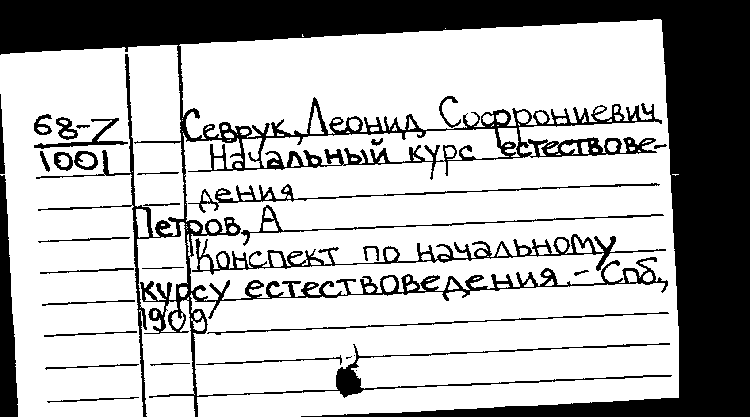 68-7 Севрук, Леонид Софрониевич
1001 Начальный курс естествове-
дения
Петров, А
Конспект по начальному
курсу естествоведения. - Спб.,
1909